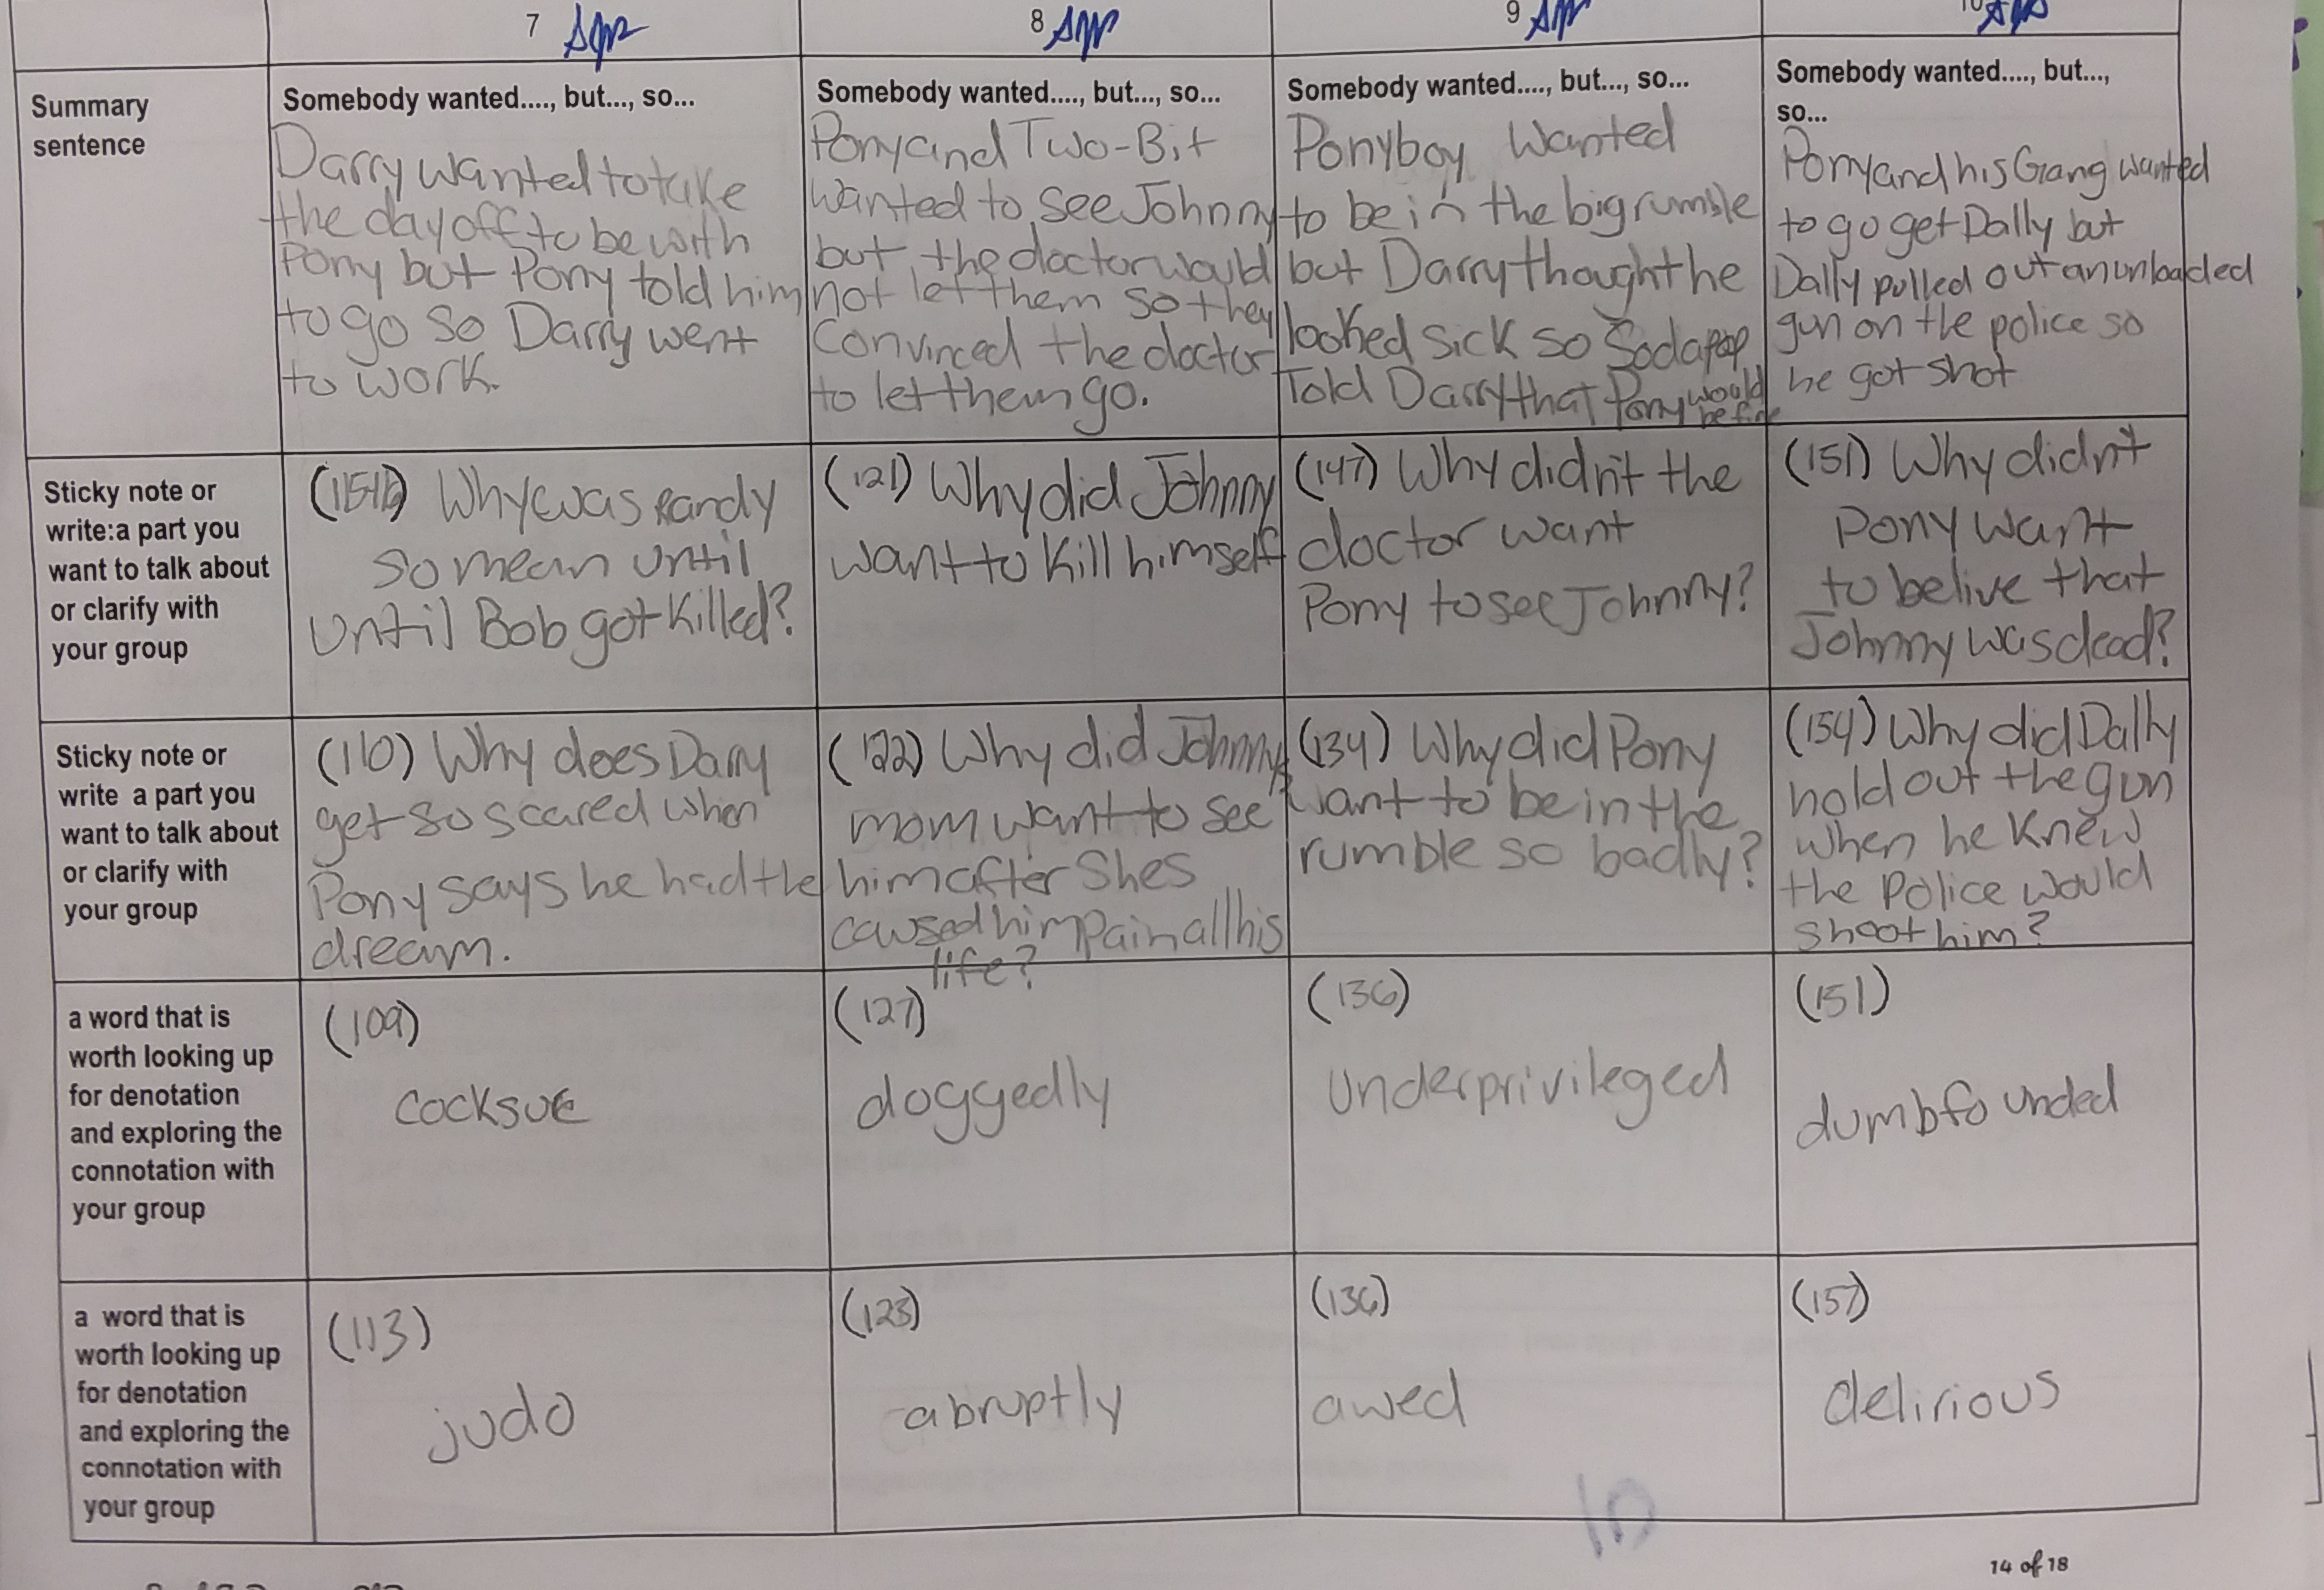 7
8
9
10
Summary
sentence
Somebody wanted...., but..., so...
Darry wanted to take
the day off to be with
Pony but Pony told him
to go so Darry went
to work.
Somebody wanted...., but..., so...
Pony and Two-Bit
wanted to see Johnny
but the doctor would
not let them so they
convinced the doctor
to let them go.
Somebody wanted...., but..., so...
Ponyboy Wanted
to be in the big rumble
but Darry thought he
looked sick so Sodapop
Told Darry that Pony would
be fine
Somebody wanted...., but...,
so...
Pony and his Gang wanted
to go get Dally but
Dally pulled out an unloaded
gun on the police so
he got shot
Sticky note or
write:a part you
want to talk about
or clarify with
your group
Why was Randy
so mean until
until Bob got killed?
(121) Why did Johnny
want to kill himself
(147) Why didn't the
doctor want
Pony to see Johnny?
(151) Why didn't
Pony want
to belive that
Johnny was dead?
Sticky note or
write a part you
want to talk about
or clarify with
your group
(110) Why does Darry
get so scared when
Pony says he had the
dream.
(122) Why did Johnnys
mom want to see
him after Shes
caused him pain all his
life?
(134) Why did Pony
want to be in the
rumble so badly?
(154) Why did Dally
hold out the gun
when he knew
the Police would
shoot him?
a word that is
worth looking up
for denotation
and exploring the
connotation with
your group
(109)
cocksue
(127)
doggedly
(136)
Underprivileged
(151)
dumbfounded
a word that is
worth looking up
for denotation
and exploring the
connotation with
your group
(113)
judo
(123)
abruptly
(136)
awed
(157)
delirious
14 of 18